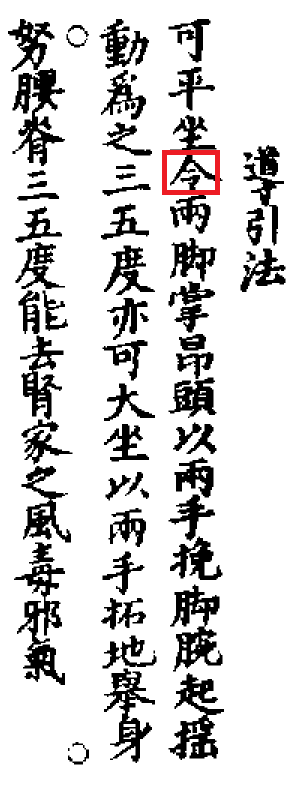 導引法
可平坐令兩脚掌昂頭以兩手挽脚腕起揺
動爲之三五度亦可大坐以兩手拓地舉身
努腰脊三五度能去腎家之風毒邪氣